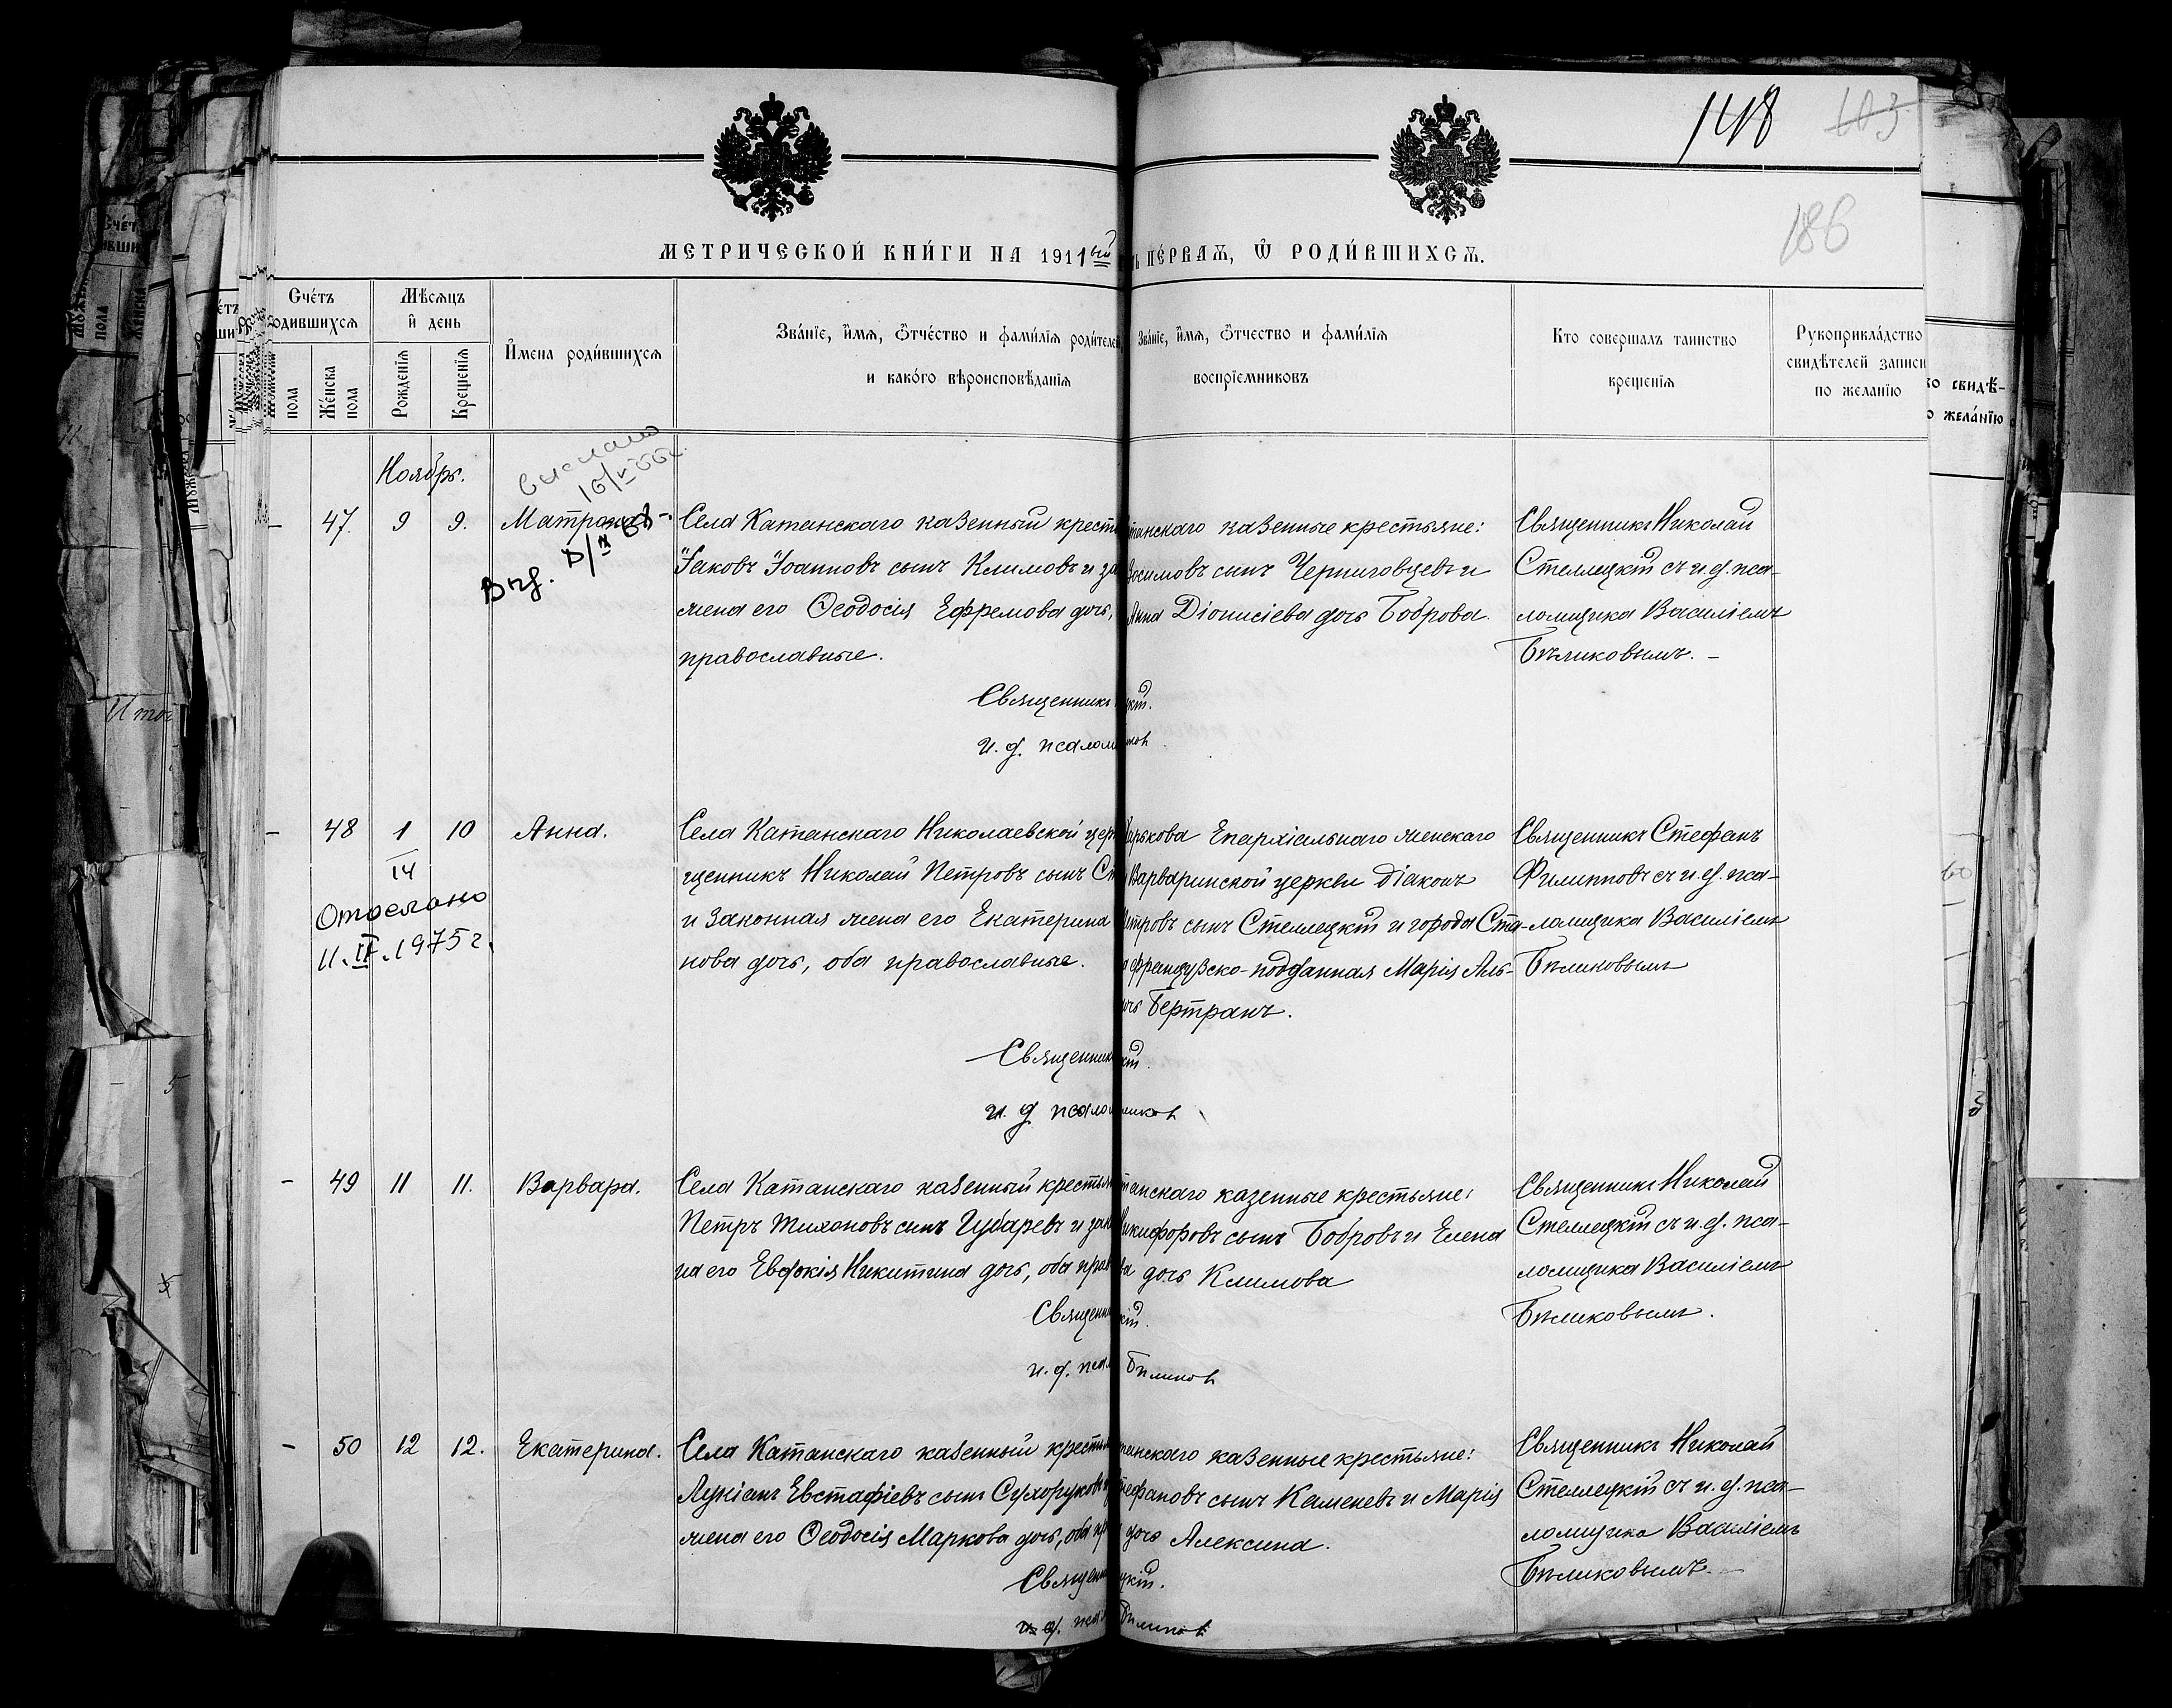 148 103
186
МЕТРИЧЕСКОЙ КНИ́ГИ НА 1911ый
ПЕ́РВАѦ, Ѿ РОДИ́ВШИХСѦ.
Сче́тъ
родившихсѧ
Мѣсѧцъ
и день
И҆мена роди́вшихсѧ
Зва́нїе, и҆́мѧ, ѻ҆́тчество и фами́лїѧ роди́телей,
и како́го вѣроисповѣ́данїѧ
Зва́нїе, и҆́мѧ, ѻ҆́тчество и фами́лїѧ
воспрїемниковъ
Кто совершалъ таинство
крещенїѧ
Рукоприкла́дство
свидѣ́телей записи
по желанїю
пола
Же́нска
пола
Рожденїѧ
Крещенїѧ
Ноябрь.
выслано
47. 9 9. Матрона
Села Катанскаго казенный крест
Іаковъ Іоанновъ сынъ Климовъ и за
жена его Ѳеодосія Ефремова дочь,
православные.
Священникъ
и. д. псалом
танскаго казенные крестьяне:
Зосимовъ сынъ Черниговцевъ и
Анна Діонисіева дочь Боброва.
цкій.
Священникъ Николай
Стеллецкій съ и. д. пса-
ломщика Василіемъ
Бѣликовымъ. –
– 48 1/14 10 Анна.
Отослано
11.II.1975 г.
Села Катанскаго Николаевской цер
щенникъ Николай Петровъ сынъ Ст
и законная жена его Екатерина
нова дочь, оба православные.
Священник
и. д псалом
Харькова Епархіальнаго женскаго
Варваринской церкви діаконъ
Петровъ сынъ Стеллецкій и города Ста-
французско-подданная Марія Аль-
дочь Бертранъ.
кій.
ликов
Священникъ Стефанъ
Филипповъ съ и. д. пса-
ломщика Василіемъ
Бѣликовымъ
– 49 11 11. Варвара.
Села Катанскаго казенный крестья
Петръ Тихоновъ сынъ Губаревъ и зак
на его Евдокія Никитина дочь, оба прав
Священни
и. д. псал
танскаго казенные крестьяне:
Никифоровъ сынъ Бобровъ и Елена
ва дочь Климова
кій.
Бѣликов
Священникъ Николай
Стеллецкій съ и. д. пса-
ломщика Василіемъ
Бѣликовымъ.
– 50 12 12. Екатерина.
Села Катанскаго казенный крестья
Лукіанъ Евстафіевъ сынъ Сухоруковъ
жена его Ѳеодосія Маркова дочь, оба пр
Священ
и. д. пса
танскаго казенные крестьяне:
тефановъ сынъ Каменевъ и Марія
дочь Алексина.
цкій.
Бѣликов
Священникъ Николай
Стеллецкій съ и. д. пса-
ломщика Василіемъ
Бѣликовымъ.